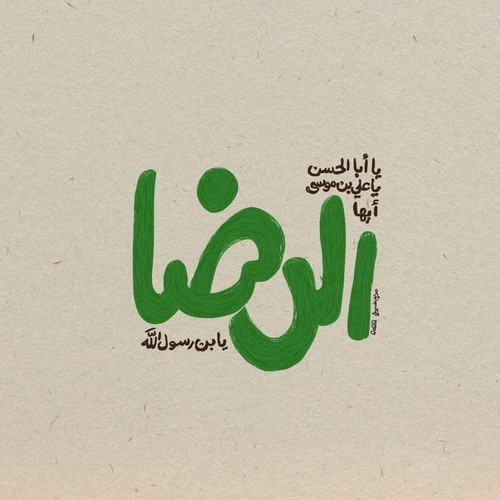 يا أبا الحسن
يا علي بن موسى
أيها
الرضا
يا بن رسول الله